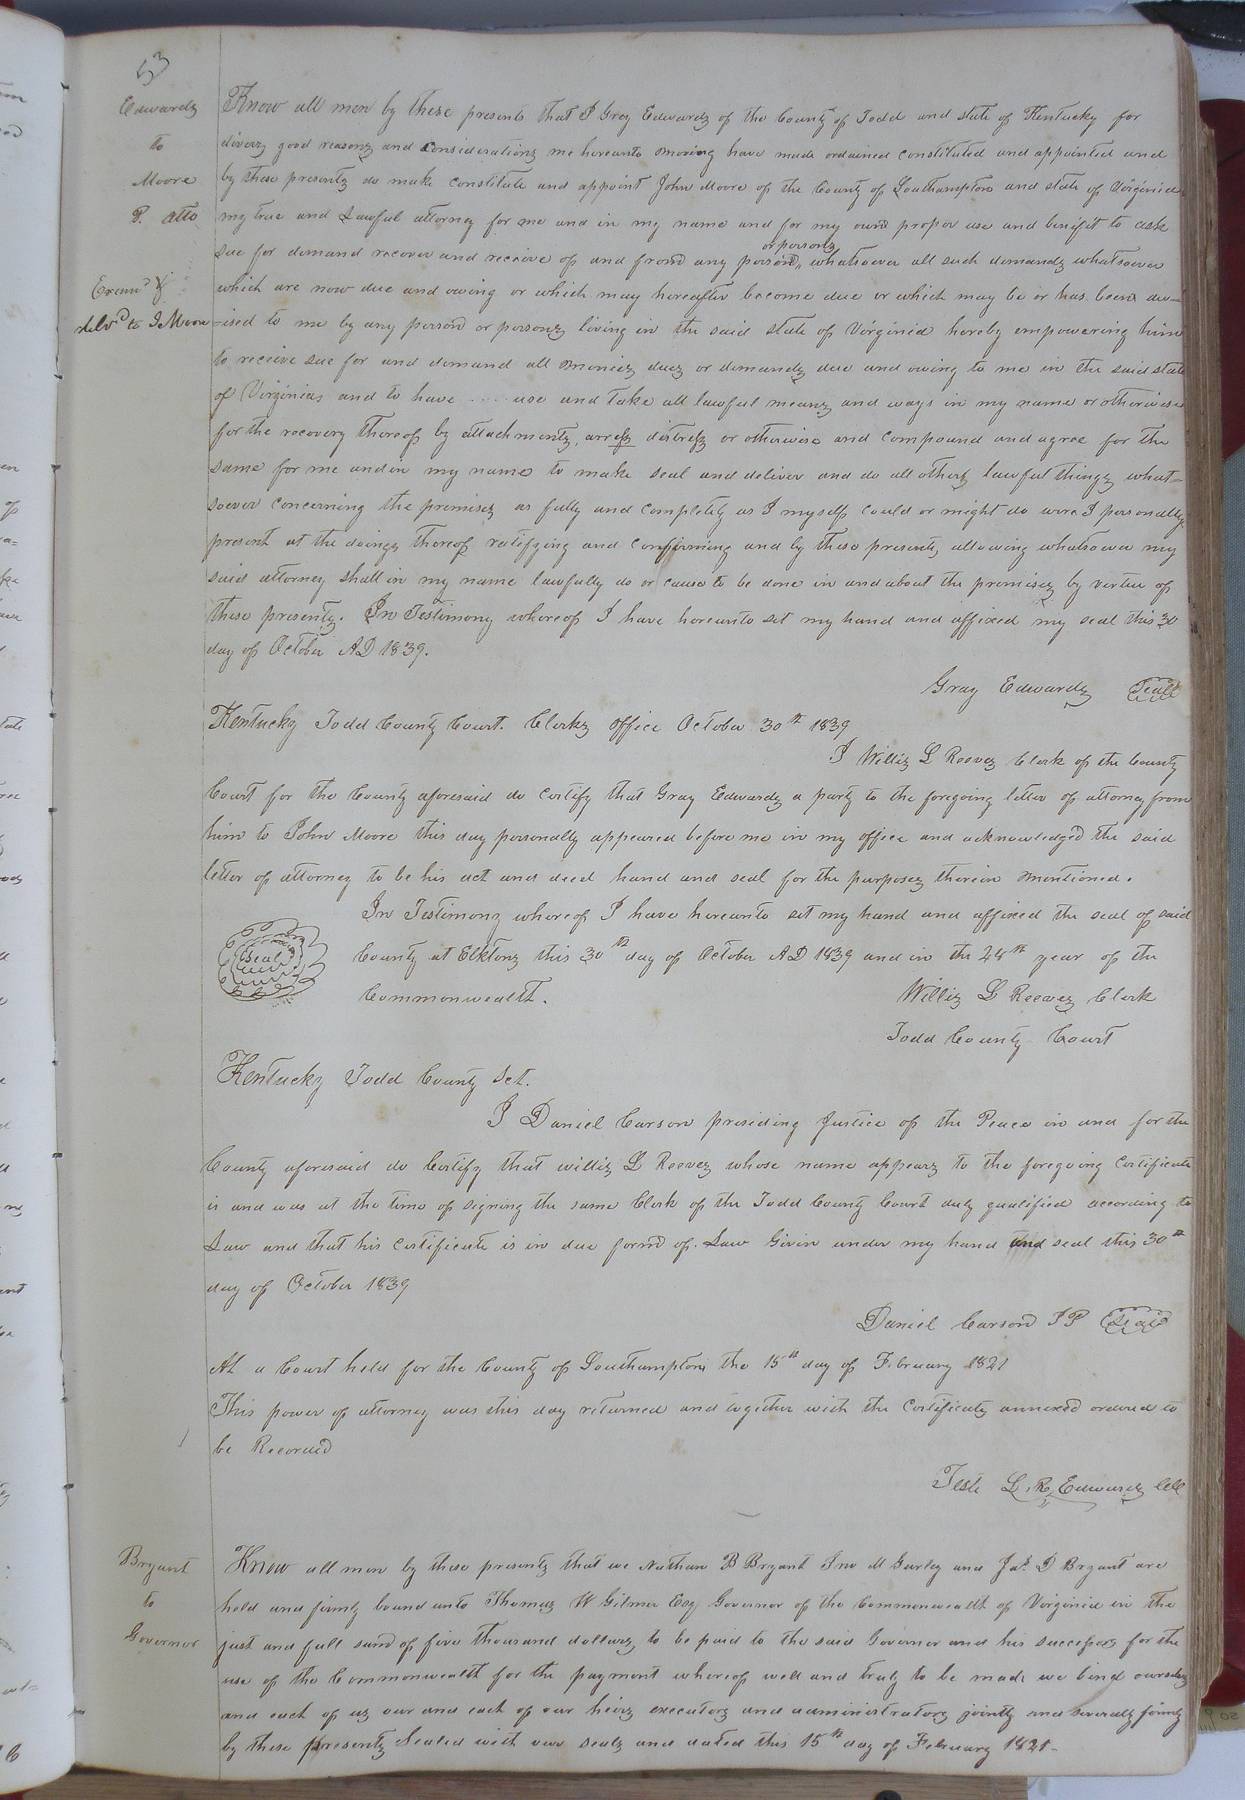 53
Edwards
to
Moore
P. Atto
Exam^d &
deliv^d to J Moore
Know all men by these presents that I Gray Edwards of the County of Todd and state of Kentucky for
divers good reasons and considerations me hereunto moving have made ordained constituted and appointed and
by these presents do make constitute and appoint John Moore of the County of Southampton and state of Virginia
my true and Lawful attorney for me and in my name and for my own proper use and benefit to ask
or persons
sue for demand recover and receive of and from any person, whatsoever all such demands whatsoever
which are now due and owing or which may hereafter become due or which may be or has been dev-
-ised to me by any person or persons living in the said state of Virginia hereby empowering him
to receive sue for and demand all monies dues or demands due and owing to me in the said state
of Virginia and to have ... use and take all lawful means and ways in my name or otherwise
for the recovery thereof by attachments, arress distress or otherwise and compound and agree for the
same for me and in my name to make seal and deliver and do all others lawful things what-
soever concerning the premises as fully and completely as I myself could or might do were I personally
present at the doings thereof ratifying and confirming and by these presents allowing whatsoever my
said attorney shall in my name lawfully do or cause to be done in and about the premises by vertue of
these presents. In Testimony whereof I have hereunto set my hand and affixed my seal this 30
day of October AD 1839.
Gray Edwards Seal
Kentucky Todd County Court. Clerks office October 30th 1839
I Willis L Reeves Clerk of the County
Court for the County aforesaid do certify that Gray Edwards a party to the foregoing letter of attorney from
him to John Moore this day personally appeared before me in my office and acknowledged the said
letter of attorney to be his act and deed hand and seal for the purposes therein mentioned.
In Testimony whereof I have hereunto set my hand and affixed the seal of said
Seal
County at Elkton this 30th day of October AD 1839 and in the 48th year of the
Commonwealth.
Willis L Reeves Clerk
Todd County Court
Kentucky Todd County Sct.
I Daniel Carson presiding Justice of the Peace in and for the
County aforesaid do Certify that Willis L Reeves whose name appears to the foregoing certificate
is and was at the time of signing the same Clerk of the Todd County Court duly qualified according to
Law and that his certificate is in due form of Law Given under my hand and seal this 30th
day of October 1839
Daniel Carson JP Seal
At a Court held for the County of Southampton the 15th day of February 1821
This power of attorney was this day returned and together with the certificates annexed ordered to
be Recorded
Teste L. R. Edwards
Bryant
to
Governor
Know all men by these presents that we Nathan B Bryant Jno M Gurley and Jas. D Bryant are
held and firmly bound unto Thomas W Gilmer Esq Governor of the Commonwealth of Virginia in the
just and full sum of five thousand dollars to be paid to the said Governor and his successors for the
use of the Commonwealth for the payment whereof well and truly to be made we bind ourselves
and each of us our and each of our heirs executors and administrators jointly and severally firmly
by these presents Sealed with our seals and dated this 15th day of February 1821-